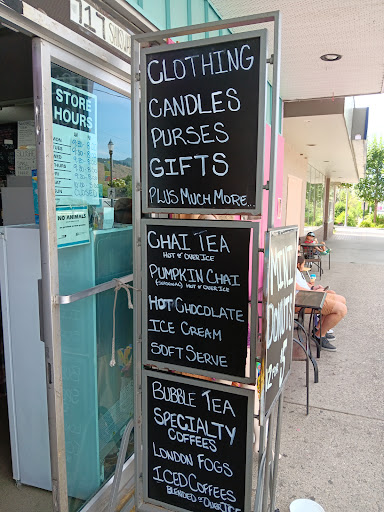 717
STORE
HOURS
NO ANIMALS
CLOTHING
CANDLES
PURSES
GIFTS
PLUS MUCH MORE...
CHAI TEA
HOT & OVER ICE
PUMPKIN CHAI
(SEASONAL) HOT & OVER ICE
HOT CHOCOLATE
ICE CREAM
SOFT SERVE
BUBBLE TEA
SPECIALTY
COFFEES
LONDON FOGS
ICED COFFEES
BLENDED OR OVER ICE
MINI
DONUTS